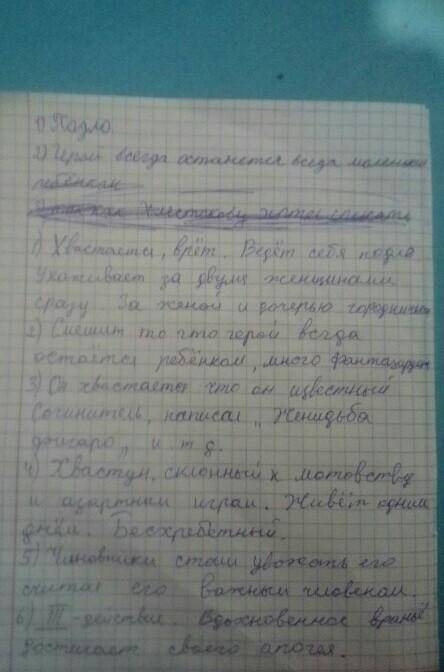 1) Подло.
2) Герой всегда останется всегда маленьким
ребёнком
Хлестакову
1) Хвастается, врёт. Ведёт себя подло
Ухаживает за двумя женщинами
сразу. За женой и дочерью городничего
2) Смешит то что герой всегда
остаётся ребёнком, много фантазирует
3) Он хвастается что он известный
Сочинитель, написал „Женидьба
фигаро„ и т д.
4) Хвастун, склонный к мотовству
и азартным играм. Живёт одним
днём. Бесхребетный.
5) Чиновники стали уважать его
считая его важным человеком.
6) III - действие. Вдохновенное враньё
достигает своего апогея.